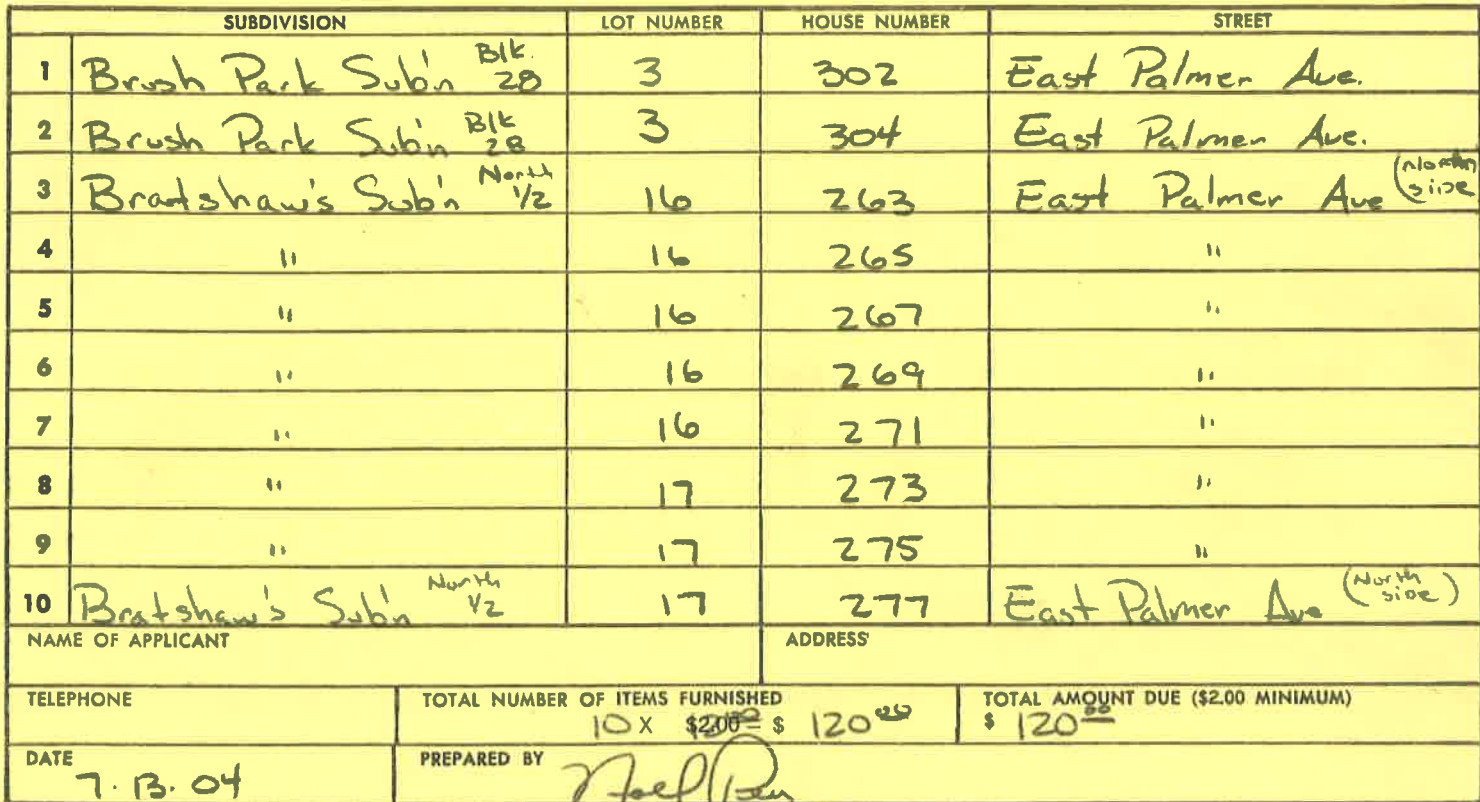 SUBDIVISION LOT NUMBER HOUSE NUMBER STREET
1 Brush Park Sub'n Blk. 28 3 302 East Palmer Ave.
2 Brush Park Sub'n Blk 28 3 304 East Palmer Ave.
3 Bradshaw's Sub'n North 1/2 16 263 East Palmer Ave (North side)
4 " 16 265 "
5 " 16 267 "
6 " 16 269 "
7 " 16 271 "
8 " 17 273 "
9 " 17 275 "
10 Bratshaw's Sub'n North 1/2 17 277 East Palmer Ave (North side)
NAME OF APPLICANT ADDRESS
TELEPHONE TOTAL NUMBER OF ITEMS FURNISHED TOTAL AMOUNT DUE ($2.00 MINIMUM)
10 X $2.00 = $ 120.00 $ 120.00
DATE PREPARED BY
7.13.04